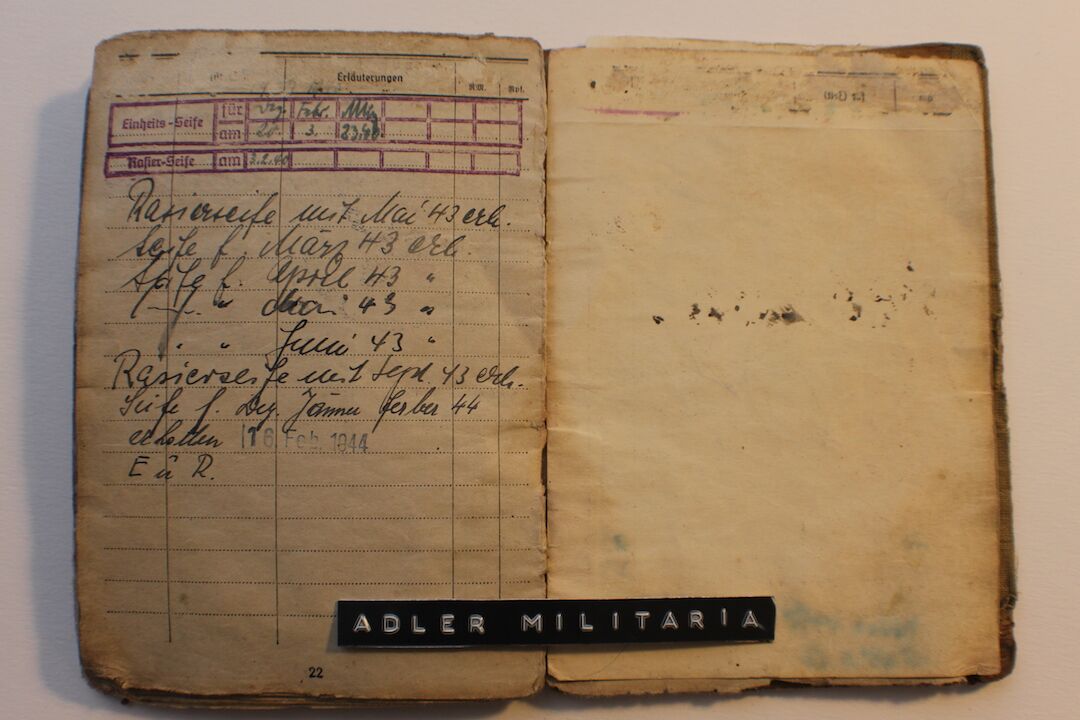 Erläuterungen
RM. Rpf.
Einheits-Seife für Dez. Febr. März
am 20. 3. 23.40
Rasier-Seife am 3.2.40
Rasierseife mit Mai 43 erh.
Seife f. März 43 erh.
Seife f. April 43 "
" " Mai 43 "
" " Juni 43 "
Rasierseife mit Sept. 43 erh.
Seife f. Dez. Jänner ferber 44
erhalten 16. Feb. 1944
E u R.
22
ADLER MILITARIA